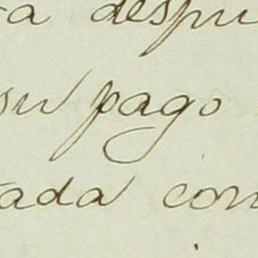 a despu
su pago
ada con